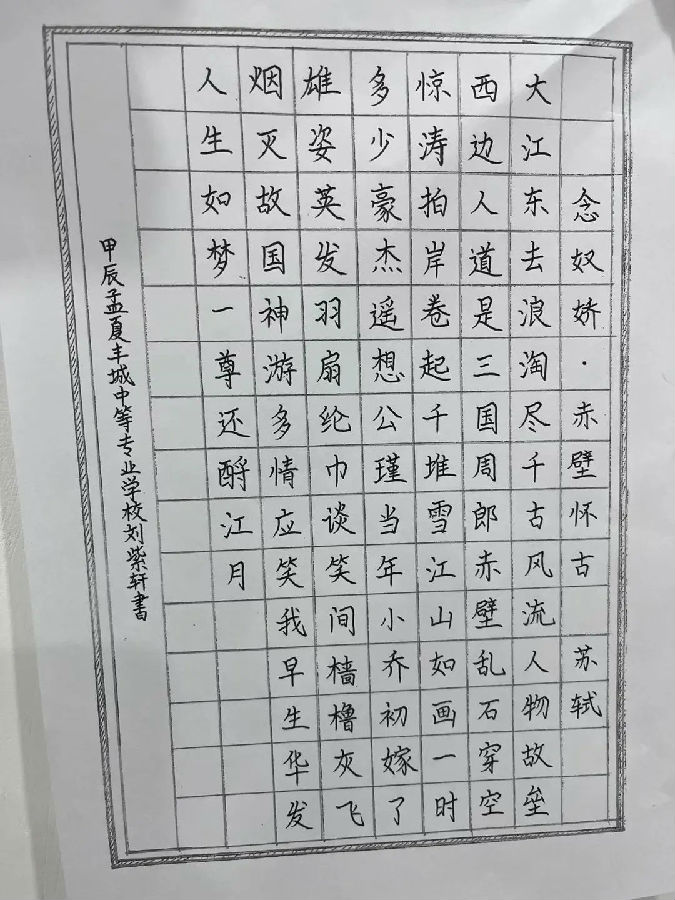 念奴娇·赤壁怀古 苏轼
大江东去浪淘尽千古风流人物故垒
西边人道是三国周郎赤壁乱石穿空
惊涛拍岸卷起千堆雪江山如画一时
多少豪杰遥想公瑾当年小乔初嫁了
雄姿英发羽扇纶巾谈笑间樯橹灰飞
烟灭故国神游多情应笑我早生华发
人生如梦一尊还酹江月
甲辰孟夏丰城中等专业学校刘紫轩書